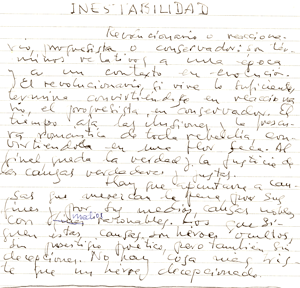 INESTABILIDAD
Revolucionario o reacciona-
rio, progresista o conservador: son tér-
minos relativos a una época
y a un contexto en evolución.
El revolucionario, si vive lo suficiente,
termina convirtiéndose en reacciona-
rio, el progresista en conservador. El
tiempo aja y la fresca-
ra romántica de toda rebeldía, con-
virtiéndola en una flor seca. Al
final queda la verdad y la justicia de
las causas verdaderas y justas.
Hay que apuntarse a cau-
sas que merezcan la pena por sus
fines y por sus medios, causas nobles
con medios Los que si-
guen estas causas son héroes ocultos,
sin prestigio poético, pero también sin
decepciones. No hay cosa más tris-
te que un héroe decepcionado.